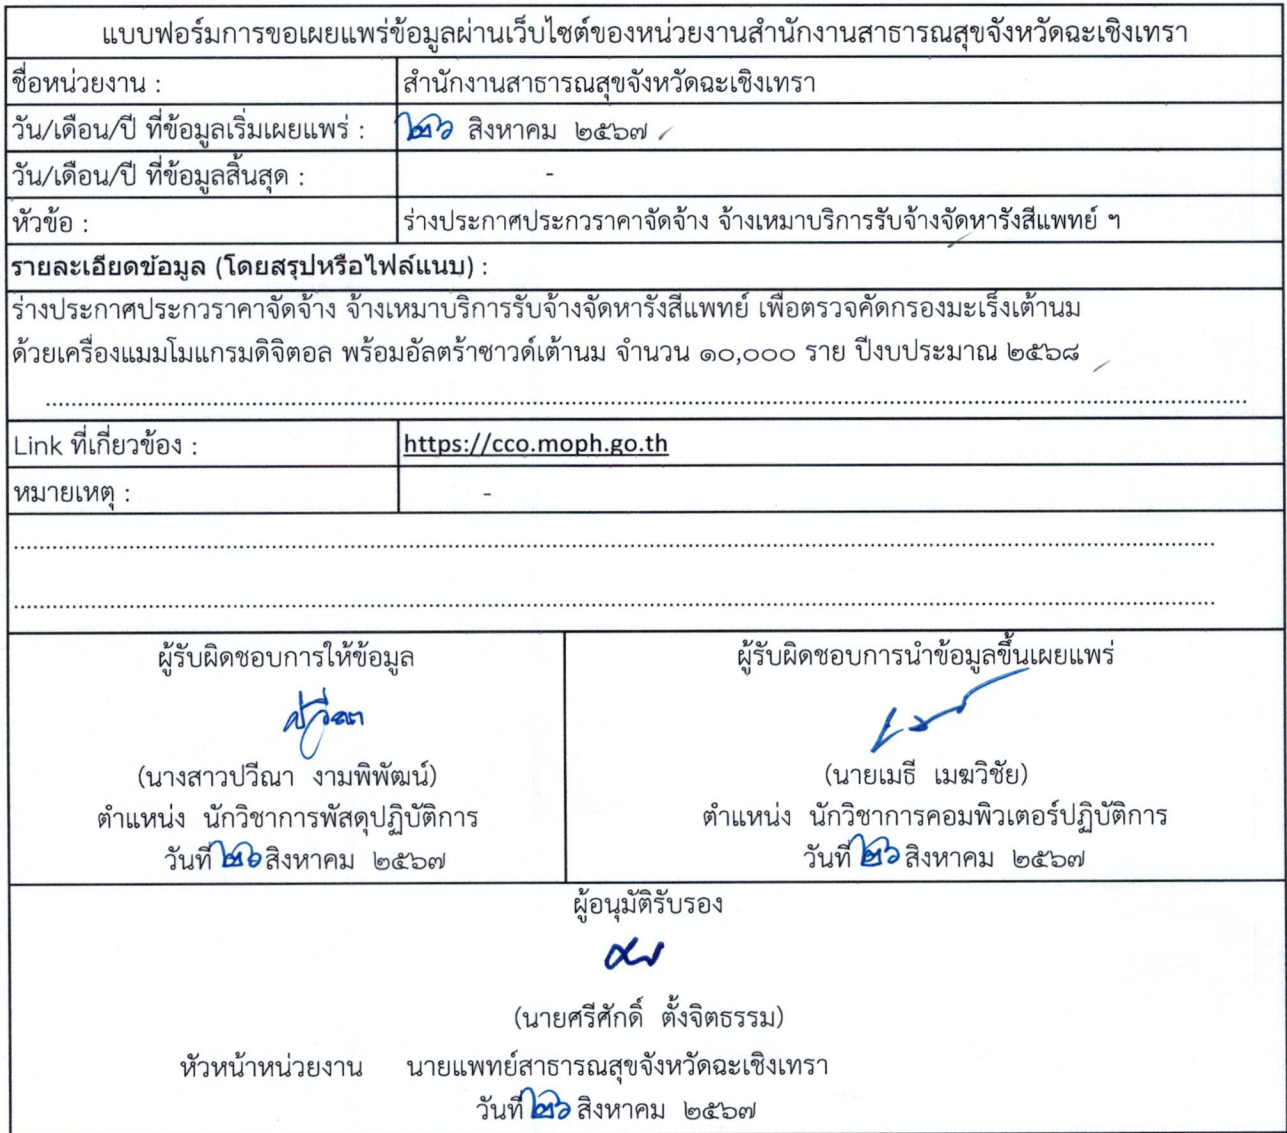 แบบฟอร์มการขอเผยแพร่ข้อมูลผ่านเว็บไซต์ของหน่วยงานสำนักงานสาธารณสุขจังหวัดฉะเชิงเทรา
ชื่อหน่วยงาน : สำนักงานสาธารณสุขจังหวัดฉะเชิงเทรา
วัน/เดือน/ปี ที่ข้อมูลเริ่มเผยแพร่ : ๒๖ สิงหาคม ๒๕๖๗
วัน/เดือน/ปี ที่ข้อมูลสิ้นสุด : -
หัวข้อ : ร่างประกาศประกวราคาจัดจ้าง จ้างเหมาบริการรับจ้างจัดหารังสีแพทย์ ฯ
รายละเอียดข้อมูล (โดยสรุปหรือไฟล์แนบ) :
ร่างประกาศประกวราคาจัดจ้าง จ้างเหมาบริการรับจ้างจัดหารังสีแพทย์ เพื่อตรวจคัดกรองมะเร็งเต้านม
ด้วยเครื่องแมมโมแกรมดิจิตอล พร้อมอัลตร้าซาวด์เต้านม จำนวน ๑๐,๐๐๐ ราย ปีงบประมาณ ๒๕๖๘
Link ที่เกี่ยวข้อง : https://cco.moph.go.th
หมายเหตุ : -
ผู้รับผิดชอบการให้ข้อมูล
ปวีณา
(นางสาวปวีณา งามพิพัฒน์)
ตำแหน่ง นักวิชาการพัสดุปฏิบัติการ
วันที่ ๒๖ สิงหาคม ๒๕๖๗
ผู้รับผิดชอบการนำข้อมูลขึ้นเผยแพร่
(นายเมธี เมฆวิชัย)
ตำแหน่ง นักวิชาการคอมพิวเตอร์ปฏิบัติการ
วันที่ ๒๖ สิงหาคม ๒๕๖๗
ผู้อนุมัติรับรอง
(นายศรีศักดิ์ ตั้งจิตธรรม)
หัวหน้าหน่วยงาน นายแพทย์สาธารณสุขจังหวัดฉะเชิงเทรา
วันที่ ๒๖ สิงหาคม ๒๕๖๗